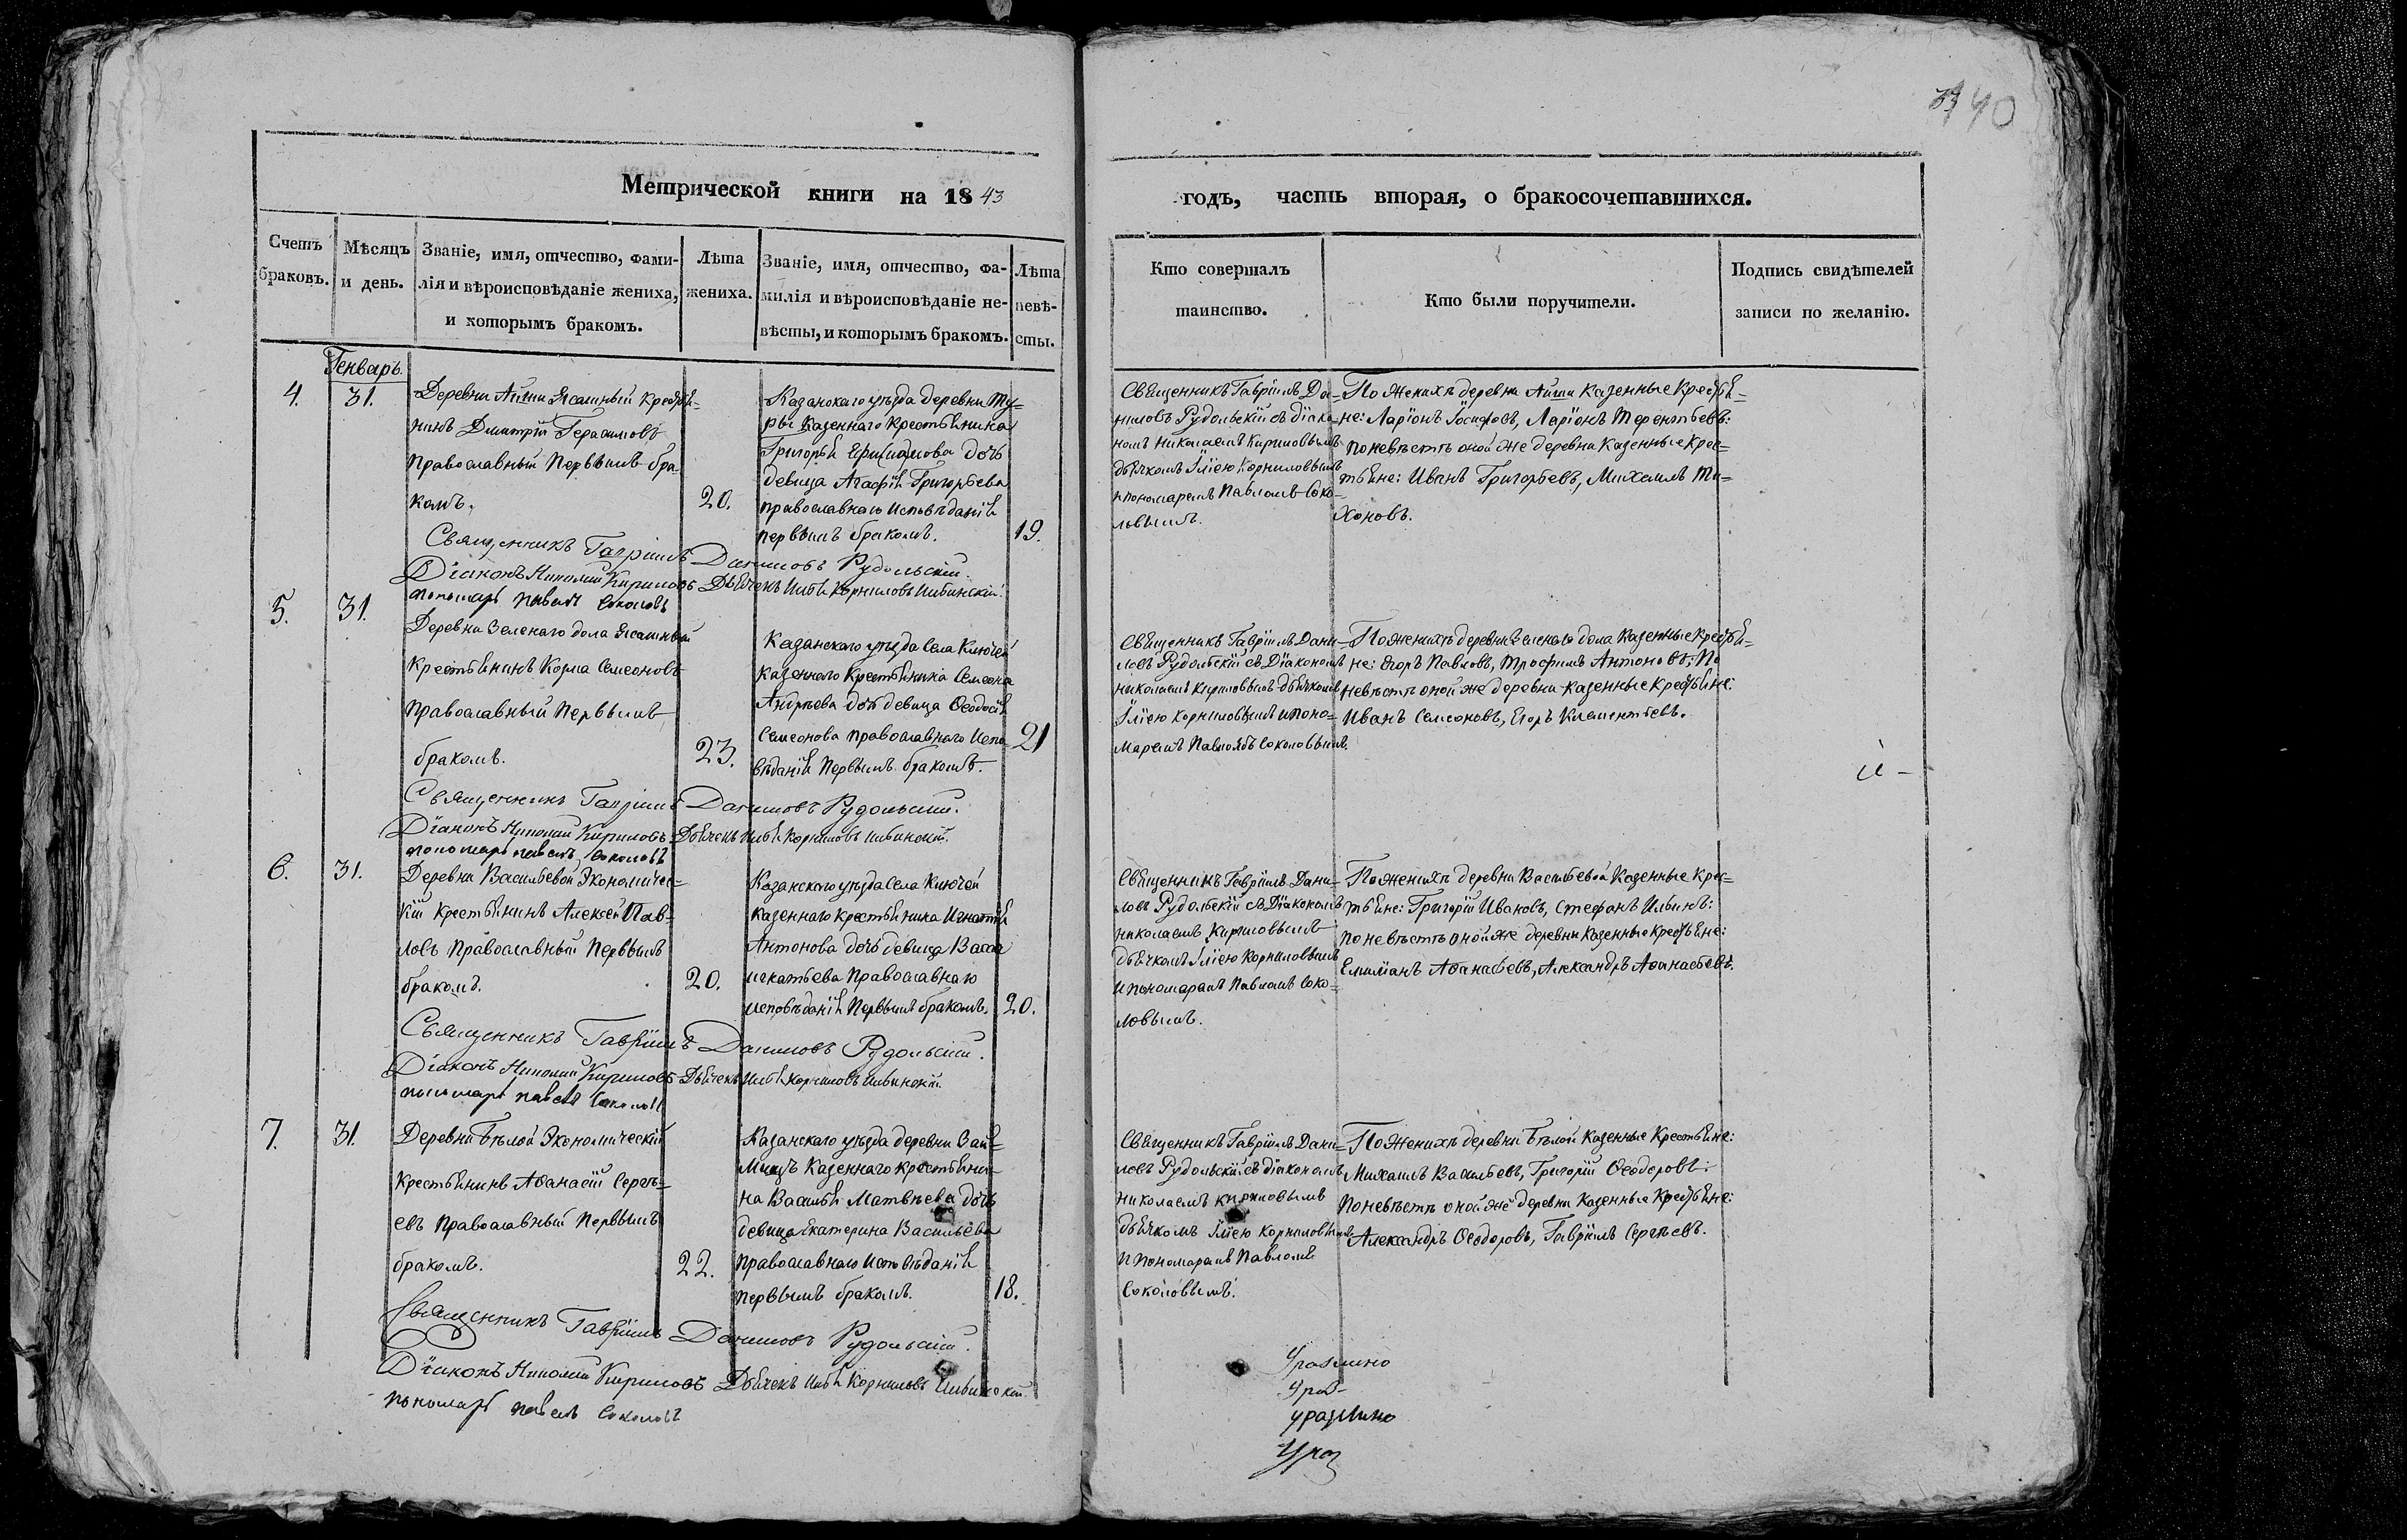 140
Метрической книги на 1843
годъ, часть вторая, о бракосочетавшихся.
Счетъ браковъ.
Мѣсяцъ и день.
Званіе, имя, отчество, фами-
лія и вѣроисповѣданіе жениха,
и которымъ бракомъ.
Лѣта
жениха.
Званіе, имя, отчество, фа-
милія и вѣроисповѣданіе не-
вѣсты, и которымъ бракомъ.
Лѣта
невѣ-
сты.
Кто совершалъ
таинство.
Кто были поручители.
Подпись свидѣтелей
записи по желанію.
Генварь
4.
31.
Деревни Айши Ясашный крестья-
нинъ Димитрій Герасимовъ
православный Первымъ бра
комъ.
20.
Казанскаго уѣзда деревни Ту-
ры Казеннаго крестьянина
Григорья дочь
девица Агафія Григорьева
православнаго Исповѣданія
первымъ бракомъ.
19.
Священникъ Гавріилъ Да-
ниловъ Рудольскій съ діако-
номъ Николаемъ Кириловымъ
дьячкомъ Иліею Корниловымъ
и пономаремъ Павломъ Соко-
ловымъ.
По Женихѣ деревни Айши Казенные Крестья-
не: Ларіонъ Іосифовъ, Ларіонъ Терентьевъ:
По невѣстѣ оной же деревни Казенные крес-
тьяне: Иванъ Григорьевъ, Михаилъ Ти-
хоновъ.
Священникъ Гавріилъ Даниловъ Рудольскій.
Діаконъ Николай Кириловъ Дьячекъ Илья Корниловъ Ильинскій.
пономарь Павелъ Соколовъ
5.
31.
Деревни Зеленаго дола Ясашный
крестьянинъ Козма Семеоновъ
Православный Первымъ
бракомъ.
23.
Казанскаго уѣзда Села Ключей
казеннаго Крестьянина Семеона
Андрѣева дочь девица Ѳеодосія
Семеонова православнаго Испо-
вѣданія Первымъ бракомъ.
21
Священникъ Гавріилъ Дани-
ловъ Рудольскій съ Діакономъ
Николаемъ Кириловымъ дьячкомъ
Иліею Корниловымъ и поно-
маремъ Павломъ Соколовымъ.
По женихѣ деревни Зеленаго дола Казенные Крестья-
не: Егоръ Павловъ, Трофимъ Антоновъ: По
невѣстѣ оной же деревни казенные Крестьяне:
Иванъ Семеоновъ, Егоръ Клементьевъ.
Священникъ Гавріилъ Даниловъ Рудольскій.
Діаконъ Николай Кириловъ Дьячекъ Илья Корниловъ Ильинскій.
пономарь Павелъ Соколовъ
6.
31.
Деревни Васильевой Экономичес-
кій Крестьянинъ Алексей Пав-
ловъ Православный Первымъ
бракомъ.
20.
Казанскаго уѣзда Села Ключей
казеннаго крестьянина Игнатія
Антонова дочь девица Васса
Игнатьева Православнаго
исповѣданія Первымъ бракомъ.
20.
Священникъ Гавріилъ Дани-
ловъ Рудольскій съ Діакономъ
Николаемъ Кириловымъ
дьячкомъ Иліею Корниловымъ
и пономарамъ Павломъ Соко-
ловымъ.
По женихѣ деревни Васильевой Казенные Крес-
тьяне: Григорій Ивановъ, Стефанъ Ильинъ:
по невѣстѣ оной же деревни Казенные Крестьяне:
Емиліанъ Аѳанасьевъ, Александръ Аѳанасьевъ.
Священникъ Гавріилъ Даниловъ Рудольскій.
Діаконъ Николай Кириловъ Дьячекъ Илья Корниловъ Ильинскій.
пономарь Павелъ Соколовъ
7.
31.
Деревни Бѣлой Экономическій
Крестьянинъ Аѳанасій Сергѣ-
евъ Православный Первымъ
бракомъ.
22.
Казанскаго уѣзда деревни Займищъ
Казеннаго крестьяни-
на Василья Матвѣева дочь
девица Екатерина Васильева
православнаго Исповѣданія
Первымъ бракомъ.
18.
Священникъ Гавріилъ Дани-
ловъ Рудольскій съ діакономъ
Николаемъ Кириловымъ
дьячкомъ Иліею Корниловымъ
и пономарамъ Павломъ
Соколовымъ.
По Женихѣ деревни Бѣлой Казенные Крестьяне:
Михаилъ Васильевъ, Григорій Ѳеодоровъ:
По невѣстѣ оной же деревни Казенные Крестьяне:
Александръ Ѳеодоровъ, Гавріилъ Сергѣевъ.
Священникъ Гавріилъ Даниловъ Рудольскій.
Діаконъ Николай Кириловъ Дьячекъ Илья Корниловъ Ильинскій.
пономарь Павелъ Соколовъ
Уразлино
Ураз-
уразлино
Ураз